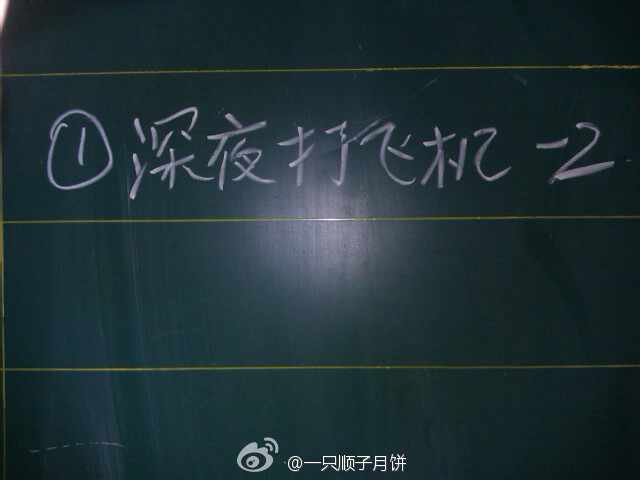 ① 深夜打飞机 -2
@一只顺子月饼